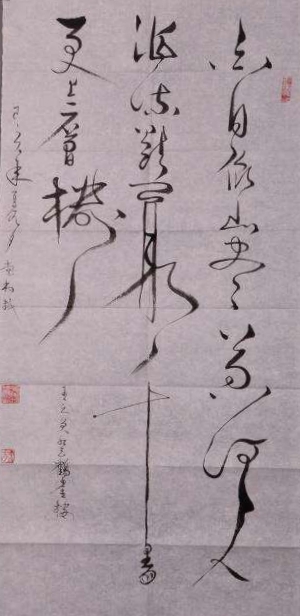 白日依山盡黃河入
海流欲窮千里目
更上一層樓
王之渙登鸛雀樓